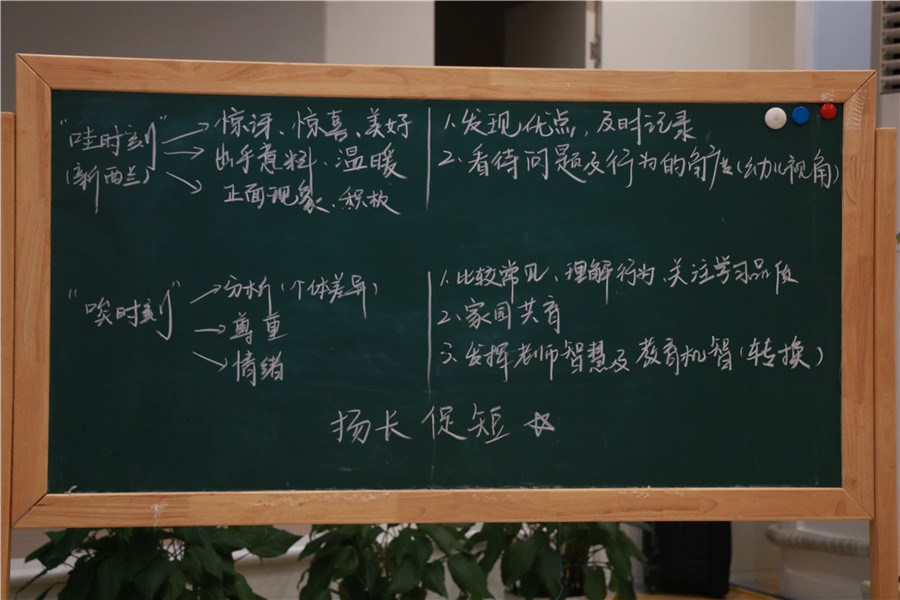 "哇时刻" → 惊讶、惊喜、美好
(新西兰) → 出乎意料、温暖
→ 正面现象、积极
1.发现优点,及时记录
2.看待问题及行为的角度(幼儿视角)
"唉时刻" → 分析(个体差异)
→ 尊重
→ 情绪
1.比较常见,理解行为,关注学习品质
2.家园共育
3.发挥老师智慧及教育机智(转换)
扬长促短☆